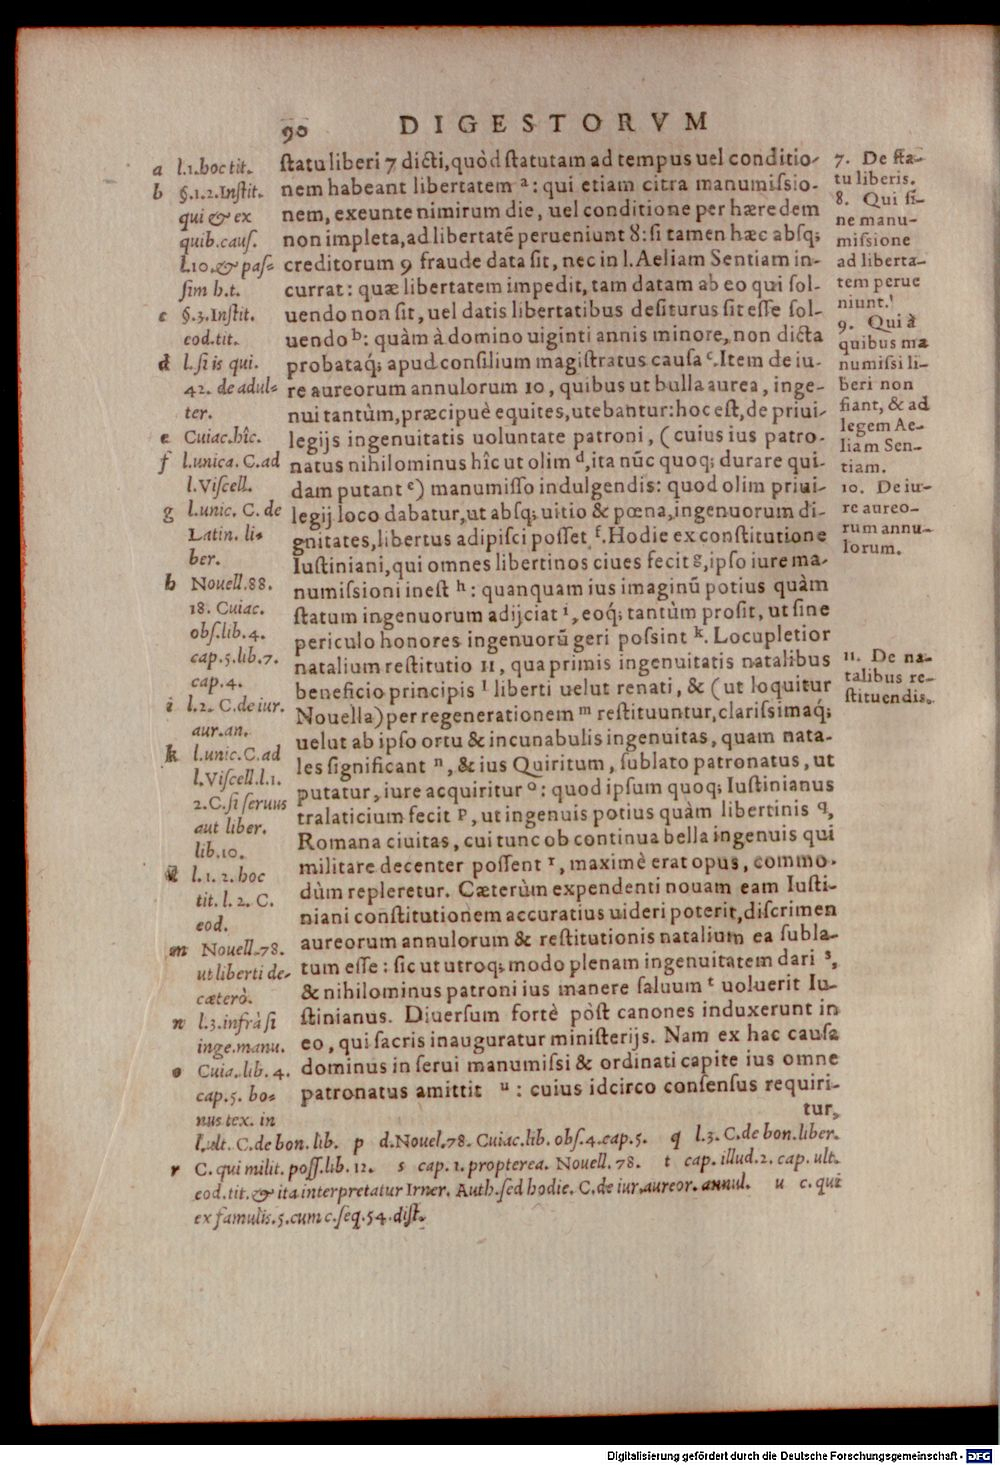 90
DIGESTORVM
ſtatuliberi 7 dicti, quòd ſtatutam ad tempus uel conditio-
nem habeant libertatem a: qui etiam citra manumiſsio-
nem, exeunte nimirum die, uel conditione per hæredem
non impleta, ad libertatẽ perueniunt 8: ſi tamen hæc abſq;
creditorum 9 fraude data ſit, nec in l. Aeliam Sentiam in-
currat: quæ libertatem impedit, tam datam ab eo qui ſol-
uendo non ſit, uel datis libertatibus deſiturus ſit eſſe ſol-
uendo b: quàm à domino uiginti annis minore, non dicta
probataq́; apud conſilium magiſtratus cauſa c. Item de iu-
re aureorum annulorum 10, quibus ut bulla aurea, inge-
nui tantùm, præcipuè equites, utebantur: hoc eſt, de priui-
legijs ingenuitatis uoluntate patroni, (cuius ius patro-
natus nihilominus hîc ut olim d, ita nũc quoq; durare qui-
dam putant e) manumiſſo indulgendis: quod olim priui-
legij loco dabatur, ut abſq; uitio & pœna, ingenuorum di-
gnitates, libertus adipiſci poſſet f. Hodie ex conſtitutione
Iuſtiniani, qui omnes libertinos ciues fecit g, ipſo iure ma-
numiſsioni ineſt h: quanquam ius imaginũ potius quàm
ſtatum ingenuorum adijciat i, eoq́; tantùm proſit, ut ſine
periculo honores ingenuorũ geri poſsint k. Locupletior
natalium reſtitutio 11, qua primis ingenuitatis natalibus
beneficio principis l liberti uelut renati, & (ut loquitur
Nouella) per regenerationem m reſtituuntur, clariſsimaq́;
uelut ab ipſo ortu & incunabulis ingenuitas, quam nata-
les ſignificant n, & ius Quiritum, ſublato patronatus, ut
putatur, iure acquiritur o: quod ipſum quoq; Iuſtinianus
tralaticium fecit p, ut ingenuis potius quàm libertinis q,
Romana ciuitas, cui tunc ob continua bella ingenuis qui
militare decenter poſſent r, maximè erat opus, commo-
dùm repleretur. Cæterùm expendenti nouam eam Iuſti-
niani conſtitutionem accuratius uideri poterit, diſcrimen
aureorum annulorum & reſtitutionis natalium ea ſubla-
tum eſſe: ſic ut utroq; modo plenam ingenuitatem dari s,
& nihilominus patroni ius manere ſaluum t uoluerit Iu-
ſtinianus. Diuerſum fortè pòſt canones induxerunt in
eo, qui ſacris inauguratur miniſterijs. Nam ex hac cauſa
dominus in ſerui manumiſsi & ordinati capite ius omne
patronatus amittit u: cuius idcirco conſenſus requiri-
tur,
a l.1. hoc tit.
b §.1.2. Inſtit.
qui & ex
quib. cauſ.
l.10. & paſ-
ſim h.t.
c §.3. Inſtit.
eod. tit.
d l. ſi is qui.
42. de adul-
ter.
e Cuiac. hîc.
f l. unica. C. ad
l. Viſcell.
g l. unic. C. de
Latin. li-
ber.
h Nouell. 88.
18. Cuiac.
obſ. lib. 4.
cap. 5. lib. 7.
cap. 4.
i l.2. C. de iur.
aur. an.
k l. unic. C. ad
l. Viſcell. l.1.
2. C. ſi ſeruus
aut liber.
lib. 10.
l l.1.2. hoc
tit. l.2. C.
eod.
m Nouell. 78.
ut liberti de-
cæterò.
n l.3. infrà ſi
inge. manu.
o Cuia. lib. 4.
cap. 5. bo-
nus tex. in
l. ult. C. de bon. lib. p d. Nouel. 78. Cuiac. lib. obſ. 4. cap. 5. q l.3. C. de bon. liber.
r C. qui milit. poſſ. lib. 12. s cap. 1. propterea. Nouell. 78. t cap. illud. 2. cap. ult.
eod. tit. & ita interpretatur Irner. Auth. ſed hodie. C. de iur. aureor. annul. u c. qui
ex famulis. 5. cum c. ſeq. 54. diſt.
7. De ſta-
tu liberis.
8. Qui ſi-
ne manu-
miſsione
ad liberta-
tem perue
niunt.
9. Qui à
quibus ma
numiſsi li-
beri non
fiant, & ad
legem Ae-
liam Sen-
tiam.
10. De iu-
re aureo-
rum annu-
lorum.
11. De na-
talibus re-
ſtituendis.
Digitalisierung gefördert durch die Deutsche Forschungsgemeinschaft - DFG